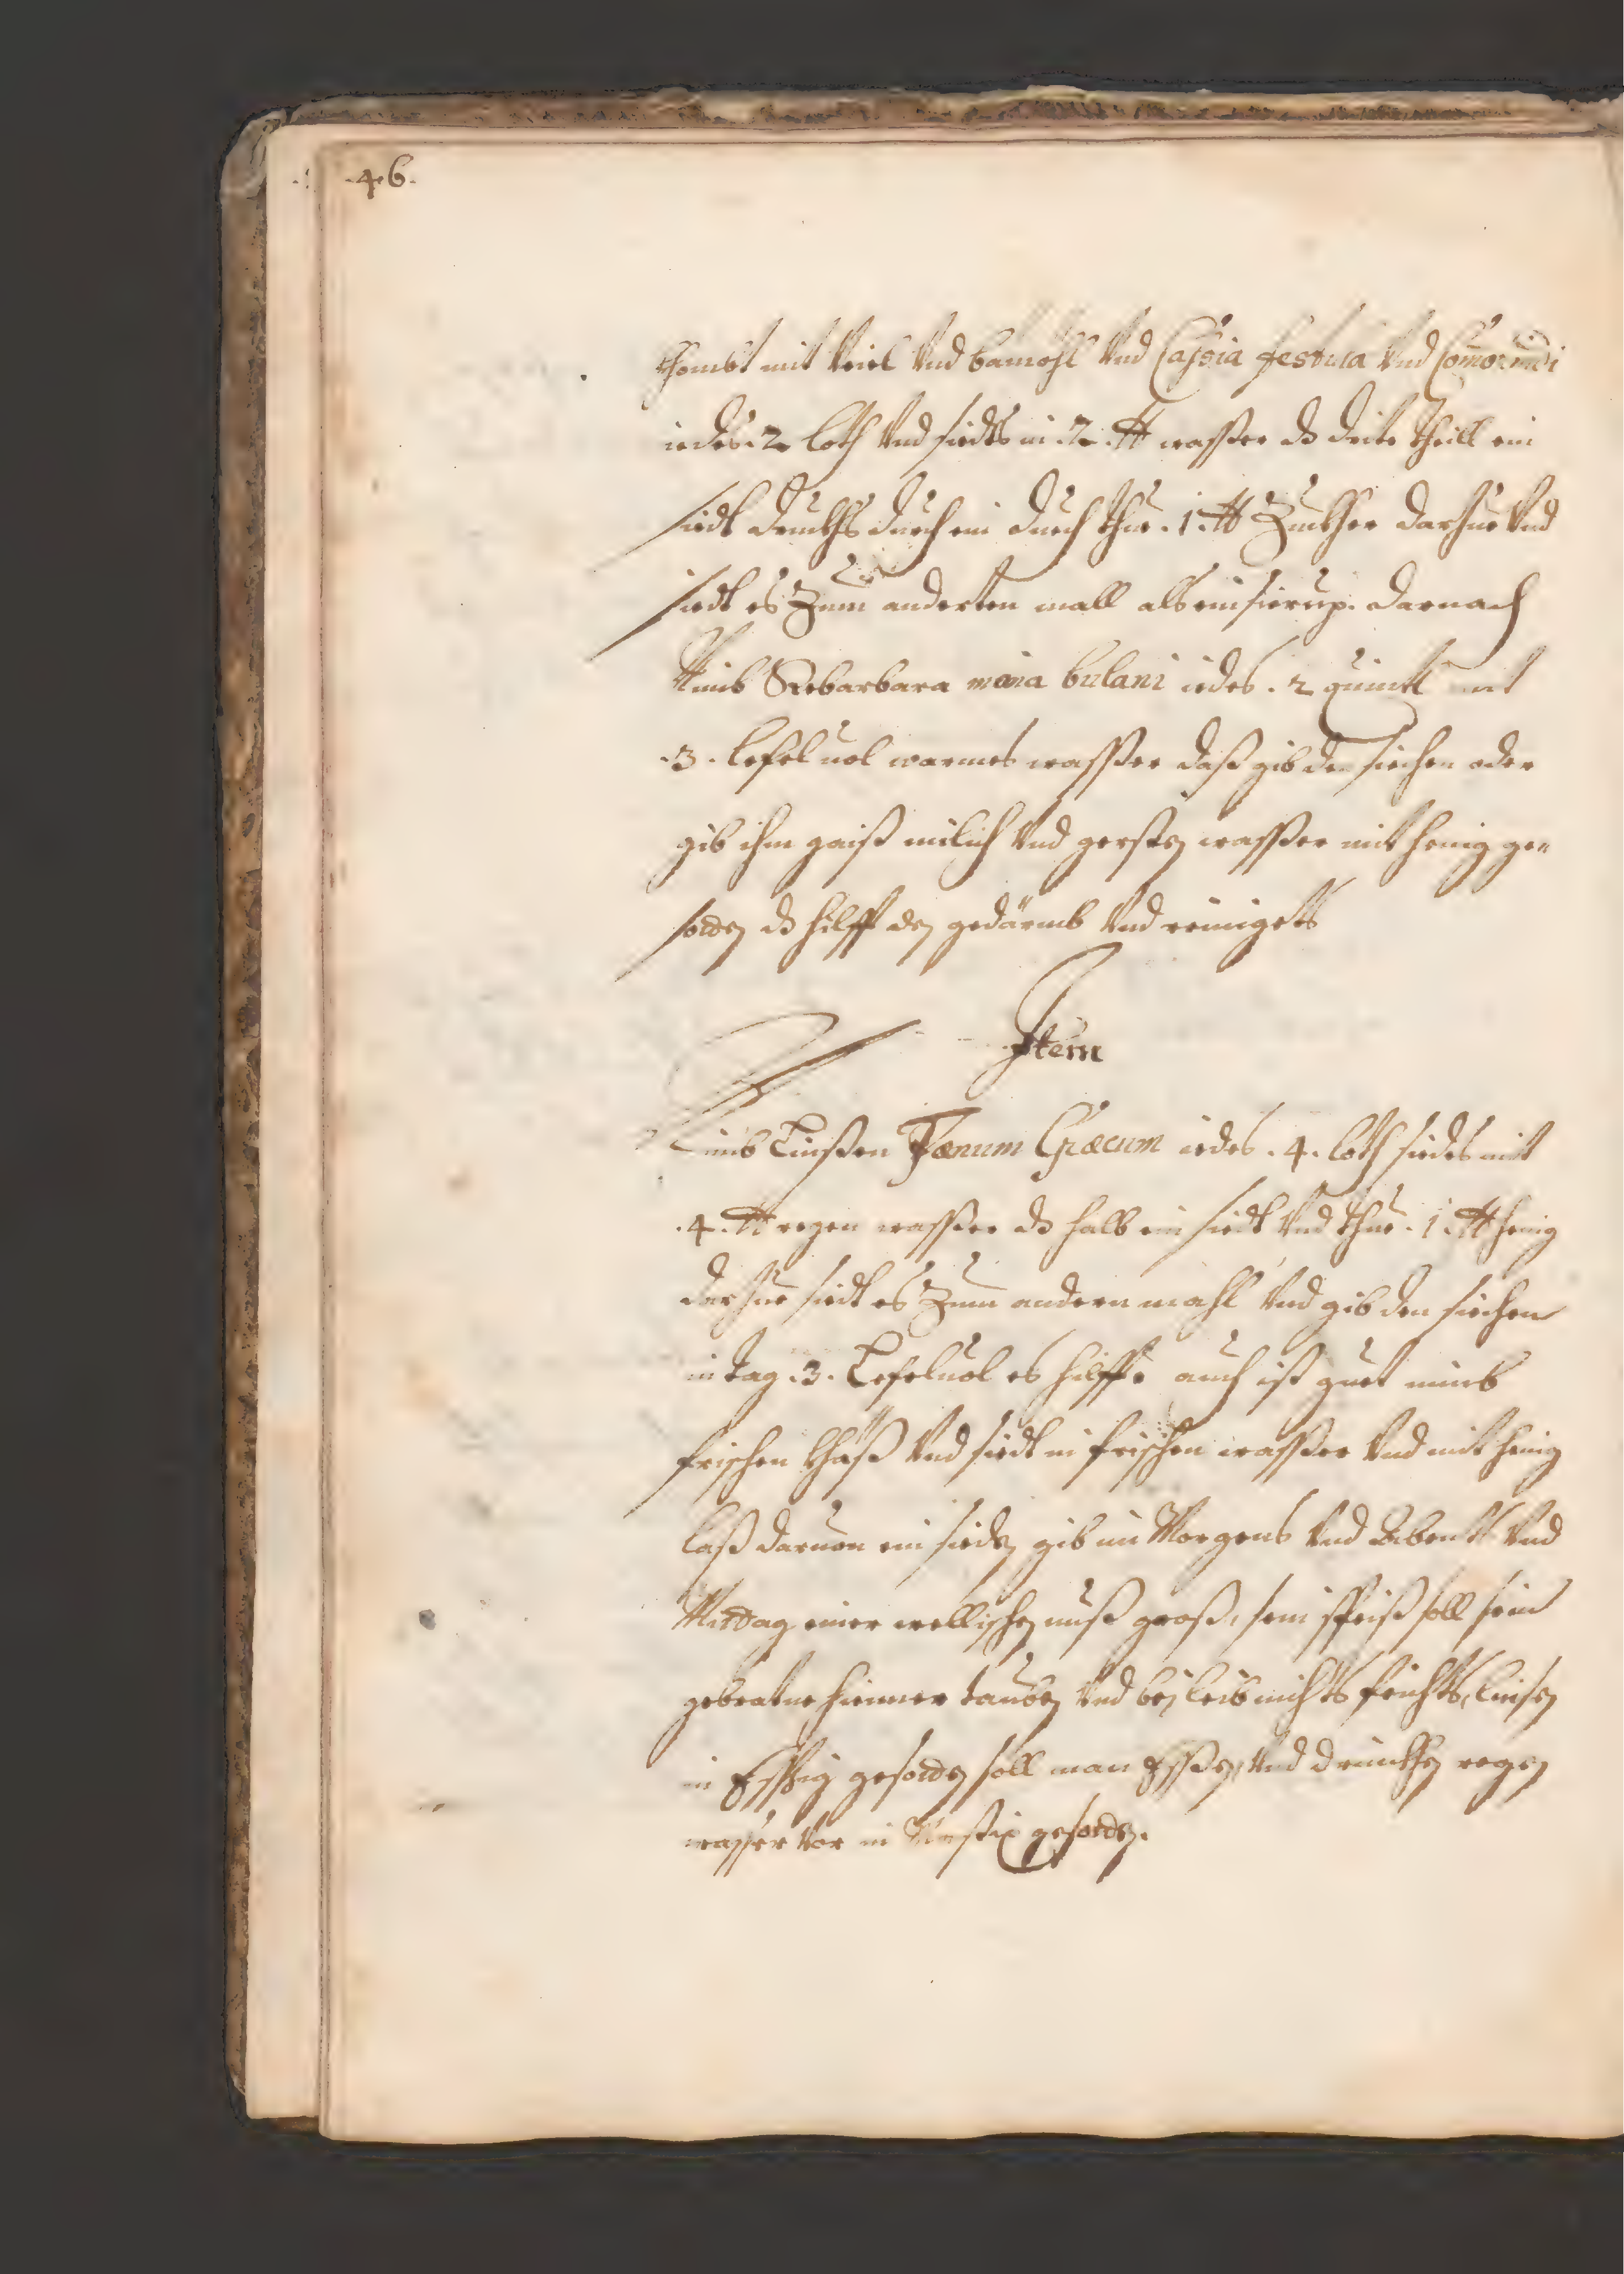 .46.
khombt mit Veiel Vnd bamöhl Vnd Cassia festula Vnd
iedes . 2 loth Vnd siedts in .2. ℔ wasser dz drite theill ein
siedt druckhs durch ein duech thue . 1 . ℔ Zuckher darzue Vnd
siedt es Zum anderten mall alß ein sierup. darnach
Nimb Rebarbara mana bulani iedes . 2 quintl mit
.3. lefel uol warmes wasser daß gib den siechen oder
gib ihm gaiß milich Vnd gersten wasser mit henig ge„
soden dz hilfft den gedärmb Vnd reinigets
Item
Nimb Linßen Fænum Græcum iedes . 4 . loth siedes mit
.4. ℔ regen wasser dz halb ein siedt Vnd thue . 1 . ℔ henig
darzue siedt es Zum andern mahl Vnd gib den siechen
in tag .3. Lefeluol es hilfft auch ist guet nimb
frischen khäß Vnd siedt in frischen wasser Vnd mit henig
laß daruon ein sieden gib im Morgens Vnd Abents Vnd
Mitdag einer wellischen nuß groß, sein speiß soll sein
gebratne hienner tauben Vnd bej leib nichts feichts, linsen
in Essig gesoden soll man Essen, Vnd drinckhen regen
wasser Vor in Mastix gesoden.